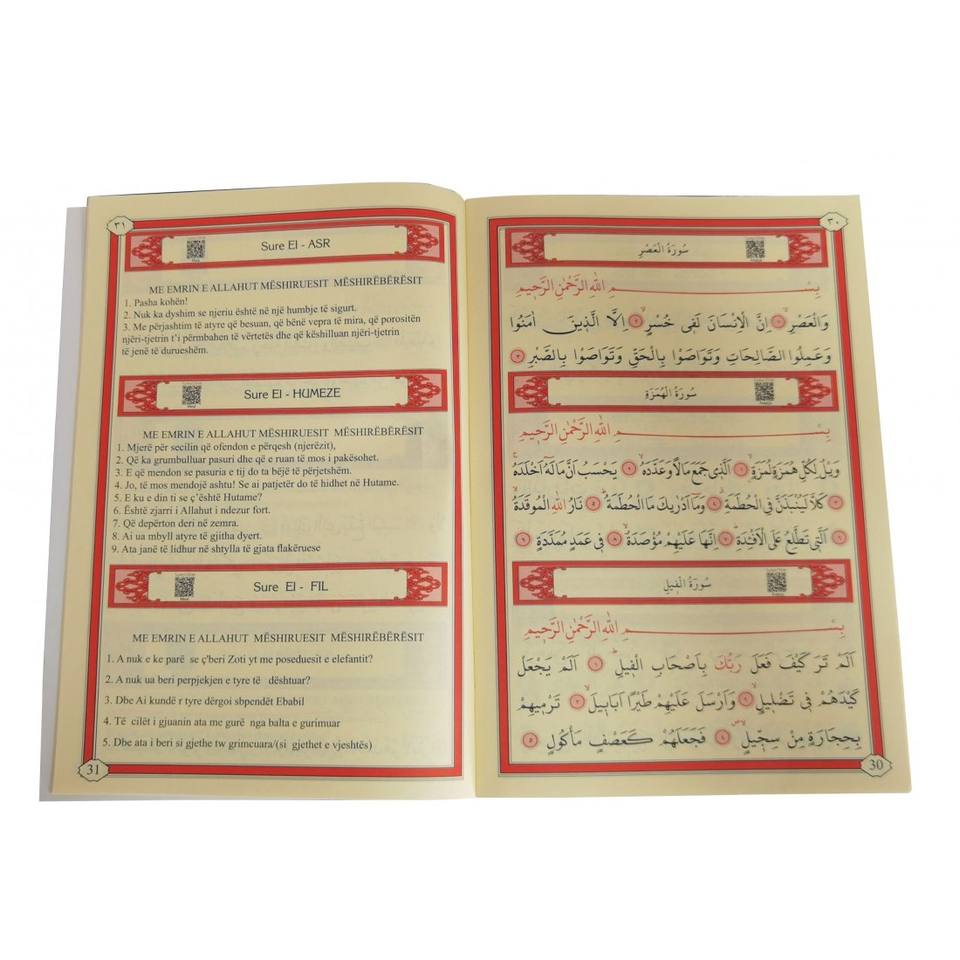 ٣١
Sure El - ASR
ME EMRIN E ALLAHUT MËSHIRUESIT MËSHIRËBËRËSIT
1. Pasha kohën!
2. Nuk ka dyshim se njeriu është në një humbje të sigurt.
3. Me përjashtim të atyre që besuan, që bënë vepra të mira, që porositën
njëri-tjetrin t'i përmbahen të vërtetës dhe që këshilluan njëri-tjetrin
të jenë të durueshëm.
Sure El - HUMEZE
ME EMRIN E ALLAHUT MËSHIRUESIT MËSHIRËBËRËSIT
1. Mjerë për secilin që ofendon e përqesh (njerëzit),
2. Që ka grumbulluar pasuri dhe që e ruan të mos i pakësohet.
3. E që mendon se pasuria e tij do ta bëjë të përjetshëm.
4. Jo, të mos mendojë ashtu! Se ai patjetër do të hidhet në Hutame.
5. E ku e din ti se ç'është Hutame?
6. Është zjarri i Allahut i ndezur fort.
7. Që depërton deri në zemra.
8. Ai ua mbyll atyre të gjitha dyert.
9. Ata janë të lidhur në shtylla të gjata flakëruese
Sure El - FIL
ME EMRIN E ALLAHUT MËSHIRUESIT MËSHIRËBËRËSIT
1. A nuk e ke parë se ç'beri Zoti yt me poseduesit e elefantit?
2. A nuk ua beri perpjekjen e tyre të dështuar?
3. Dhe Ai kundë r tyre dërgoi shpendët Ebabil
4. Të cilët i gjuanin ata me gurë nga balta e gurimuar
5. Dbe ata i beri si gjethe tw grimcuara/(si gjethet e vjeshtës)
31
٣٠
سُورَةُ الْعَصْرِ
بِسْـــــمِ اللهِ الرَّحْمٰنِ الرَّحِيمِ
وَالْعَصْرِۙ ١ اِنَّ الْاِنْسَانَ لَفِى خُسْرٍۙ ٢ اِلَّا الَّذِينَ اٰمَنُوا
وَعَمِلُوا الصَّالِحَاتِ وَتَوَاصَوْا بِالْحَقِّ وَتَوَاصَوْا بِالصَّبْرِ ٣
سُورَةُ الْهُمَزَةِ
بِسْـــــمِ اللهِ الرَّحْمٰنِ الرَّحِيمِ
وَيْلٌ لِكُلِّ هُمَزَةٍ لُمَزَةٍۙ ١ اَلَّذِى جَمَعَ مَالًا وَعَدَّدَهُۙ ٢ يَحْسَبُ اَنَّ مَالَهُٓ اَخْلَدَهُۚ
٣ كَلَّا لَيُنْبَذَنَّ فِى الْحُطَمَةِۘ ٤ وَمَٓا اَدْرٰيكَ مَا الْحُطَمَةُۜ ٥ نَارُ اللهِ الْمُوقَدَةُۙ
٦ اَلَّتِى تَطَّلِعُ عَلَى الْاَفْـِٔدَةِۜ ٧ اِنَّهَا عَلَيْهِمْ مُؤْصَدَةٌۙ ٨ فِى عَمَدٍ مُمَدَّدَةٍ ٩
سُورَةُ الْفِيلِ
بِسْـــــمِ اللهِ الرَّحْمٰنِ الرَّحِيمِ
اَلَمْ تَرَ كَيْفَ فَعَلَ رَبُّكَ بِاَصْحَابِ الْفِيلِۜ ١ اَلَمْ يَجْعَلْ
كَيْدَهُمْ فِى تَضْلِيلٍۙ ٢ وَاَرْسَلَ عَلَيْهِمْ طَيْرًا اَبَابِيلَۙ ٣ تَرْمِيهِمْ
بِحِجَارَةٍ مِنْ سِجِّيلٍۖ ٤ فَجَعَلَهُمْ كَعَصْفٍ مَأْكُولٍ ٥
30